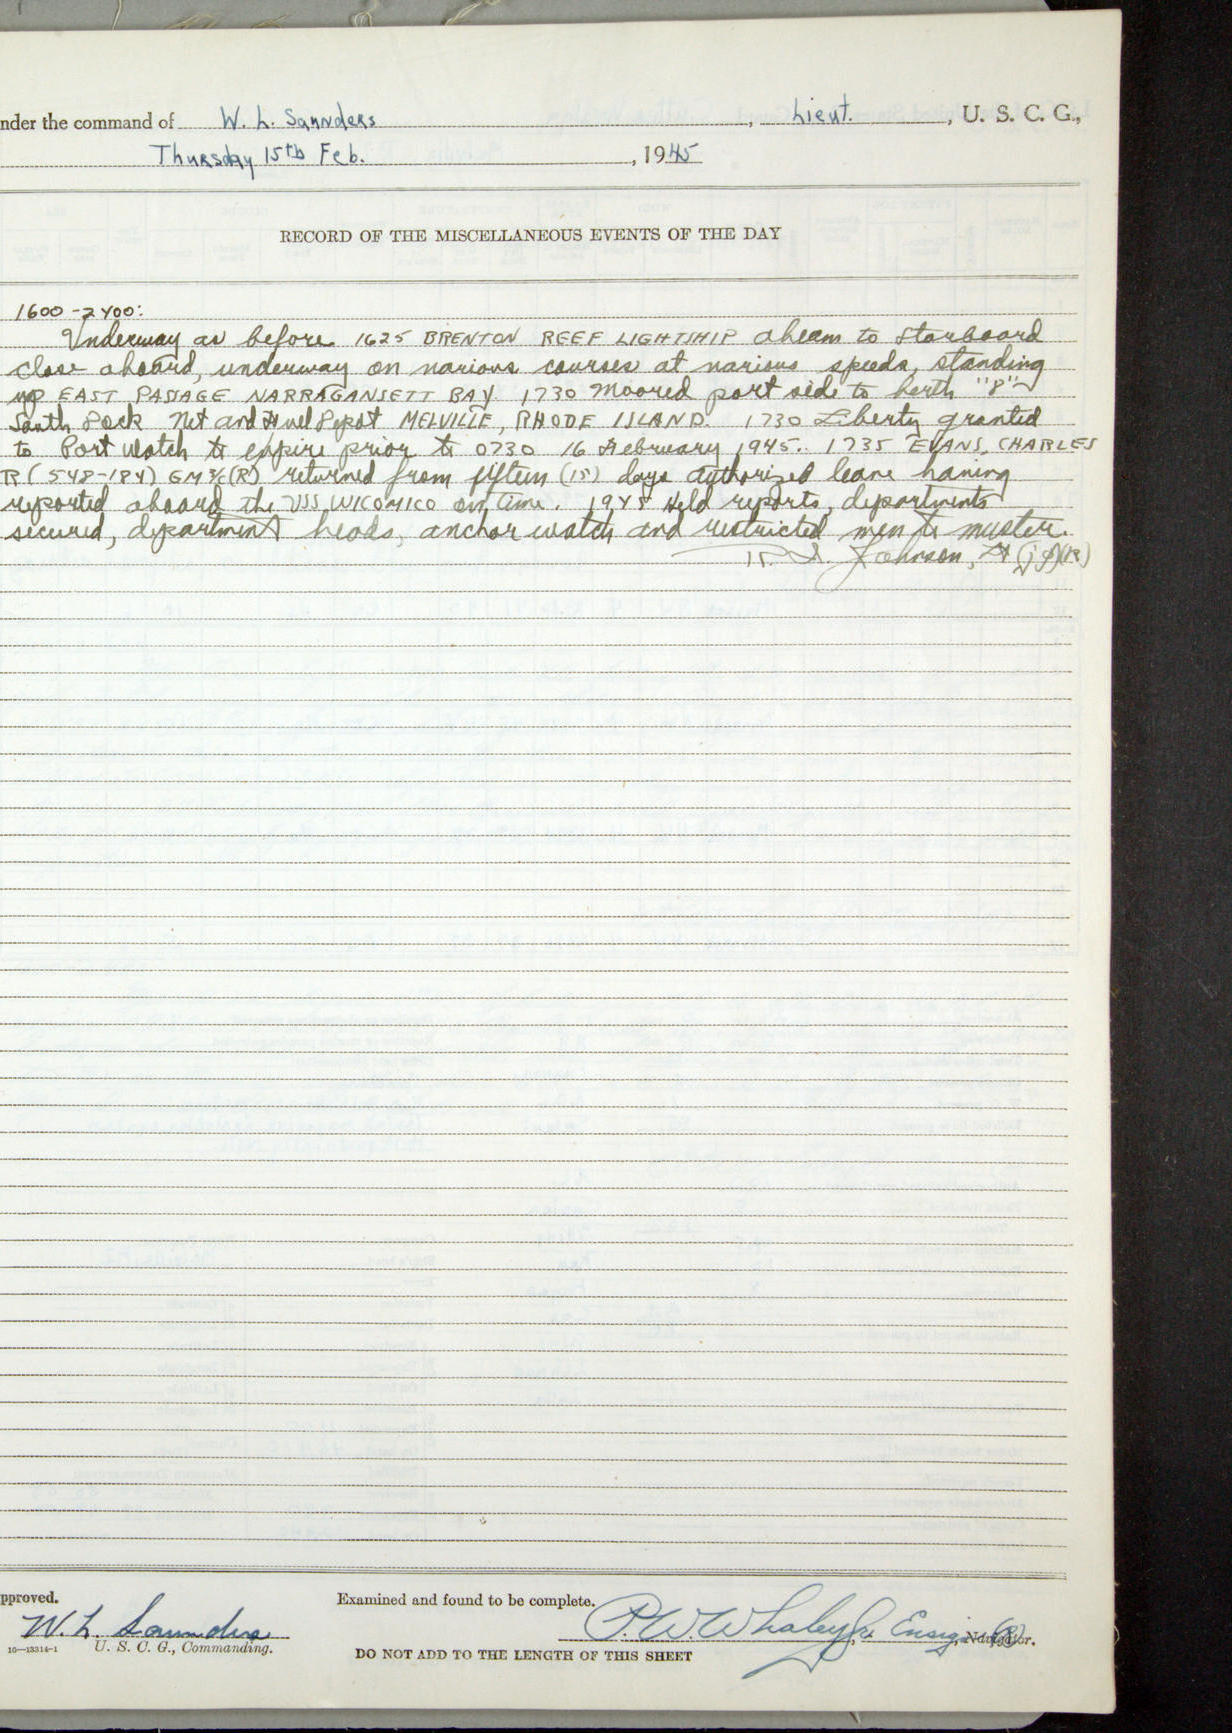 nder the command of W. L. Saunders, Lieut., U. S. C. G.,
Thursday 15th Feb., 1945
RECORD OF THE MISCELLANEOUS EVENTS OF THE DAY
1600-2400:
Underway as before 1625 BRENTON REEF LIGHTSHIP abeam to starboard
close aboard, underway on various courses at various speeds, standing
up EAST PASSAGE NARRAGANSETT BAY 1730 Moored port side to berth "P"
South Dock Net and Fuel Depot MELVILLE, RHODE ISLAND. 1730 Liberty granted
to Port Watch to expire prior to 0730 16 February 1945. 1735 EVANS, CHARLES
R (548-184) GM3/c(R) returned from fifteen (15) days authorized leave having
reported aboard the USS WICOMICO on time. 1945 Held reports, departments
secured, department heads, anchor watch and restricted men to muster.
Johnson, Lt (jg)(R)
pproved.
W. L. Saunders
16—13314-1 U. S. C. G., Commanding.
Examined and found to be complete.
P. W. Whaley Jr. Ensign (R), Navigator.
DO NOT ADD TO THE LENGTH OF THIS SHEET